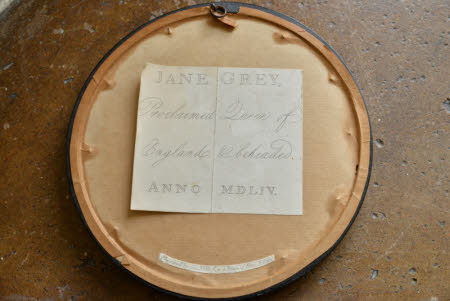 JANE GREY,
Proclaimed Queen of
England & beheaded.
ANNO MDLIV.